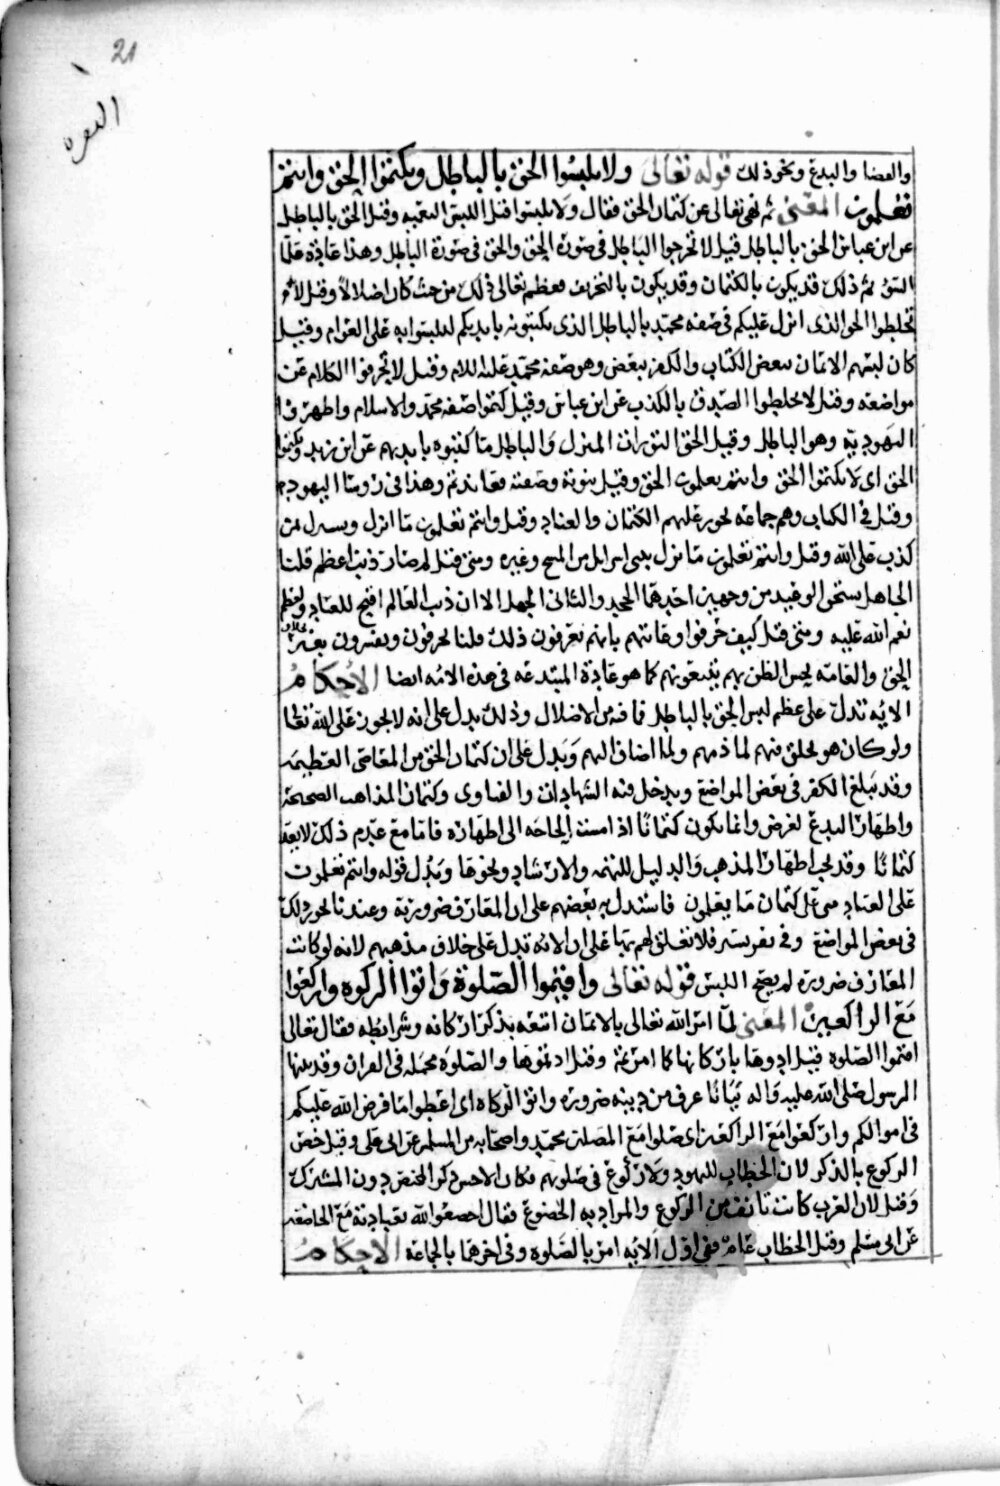 21
البقرة
والقضا والبدع ونحو ذلك قوله تعالى ولا تلبسوا الحق بالباطل وتكتموا الحق وانتم
تعلمون المعنى ثم نهى تعالى عن كتمان الحق فقال ولا تلبسوا قيل اللبس التعميه وقيل الحق بالباطل
عن ابن عباس الحق بالباطل قيل لا تخرجوا الباطل في صورة الحق والحق في صورة الباطل وهذا عادة علما
السوء ثم ذلك قد يكون بالكتمان وقد يكون بالتحريف فعظم تعالى ذلك من حيث كان اضلالا وقيل لا
تخلطوا الحق الذى انزل عليكم في صفه محمد بالباطل الذى تكتبونه بايديكم لتلبسوا به على العوام وقيل
كان لبسهم الايمان ببعض الكتاب والكفر ببعض وهو صفه محمد عليه السلام وقيل لا تحرفوا الكلام عن
مواضعه وقيل لا تخلطوا الصدق بالكذب عن ابن عباس وقيل كتموا صفه محمد والاسلام واظهروا
اليهودية وهو الباطل وقيل الحق التوراة المنزل والباطل ما كتبوه بايديهم عن ابن زيد وتكتموا
الحق اى لا تكتموا الحق وانتم تعلمون الحق وقيل نبوته وصفته فعاندتم وهذا في رؤسا اليهود
وقيل في الكتاب وهم جماعه يجوز عليهم الكتمان والعناد وقيل وانتم تعلمون ما انزل وينزل من
كذب على الله وقيل وانتم تعلمون ما نزل ببنى اسرايل من المسخ وغيره ومتى قيل لم صار ذنبه اعظم قلنا
الجاهل يستحق الوعيد من وجهين احدهما الجحد والثاني الجهل الا ان ذنب العالم اقبح للعناد ولعظم
نعم الله عليه ومتى قيل كيف حرفوا وعامتهم بانهم يعرفون ذلك قلنا يحرفون ويفسرون بغير
خلاف
الحق والعامه يحسن الظن بهم يتبعونهم كما هو عادة المبتدعه في هذه الامه ايضا الاحكام
الايه تدل على عظم لبس الحق بالباطل لما فيه من الاضلال وذلك يدل على انه لا يجوز على الله تعالى
ولو كان هو يخلق فيهم لما ذمهم ولما اضاف اليهم ويدل على ان كتمان الحق من المعاصى العظيمه
وقد يبلغ الكفر في بعض المواضع ويدخل فيه الشهادات والفتاوى وكتمان المذاهب الصحيحة
واظهار البدع لغرض وانما يكون كتمانا اذا مست الحاجه الى اظهاره فاما مع عدم ذلك لا يعد
كتمانا وقد يجب اظهار المذهب والدليل للتهمه والارشاد ونحوها ويدل قوله وانتم تعلمون
على العناد على كتمان ما يعلمون فاستدل به بعضهم على ان المعارف ضرورية وعندنا يجوز ذلك
في بعض المواضع وفي نفر يسير فلا تعلق لهم بها على ان الايه تدل على خلاف مذهبهم لانه لو كانت
المعارف ضرورة لم يصح اللبس قوله تعالى واقيموا الصلوة وآتوا الزكوه واركعوا
مع الراكعين المعنى لما امر الله تعالى بالايمان اتبعه بذكر اركانه وشرائطه فقال تعالى
اقيموا الصلوه قيل ادوها باركانها كما امرتم وقيل اديموها والصلوه مجمله في القران وقد بينها
الرسول صلى الله عليه واله بيانا عرف من دينه ضرورة واتوا الزكاه اى اعطوا ما فرض الله عليكم
في اموالكم واركعوا مع الراكعين اى صلوا مع المصلين محمد واصحابه من المسلمين عن ابى على وقيل خص
الركوع بالذكر لان الخطاب لليهود ولا ركوع في صلوتهم فكان الاحسن ذكر المختص دون المشترك
وقيل لان العرب كانت تانف من الركوع والمراد به الخضوع فقال اخضعوا لله بعبادته مع الخاضعين
عن ابى مسلم وقيل الخطاب عام ففى اول الايه امر بالصلوه وفى اخرها بالجماعة الاحكام